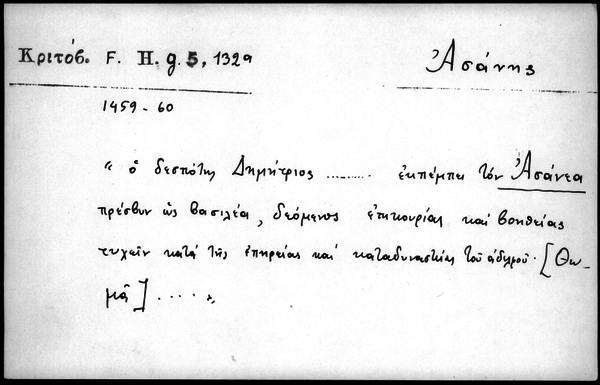 Κριτόβ. F. H. g. 5, 132a
Ἀσάνης
1459-60
" ὁ δεσπότης Δημήτριος .......... ἐκπέμπει τὸν Ἀσάνεα
πρέσβυν ὡς βασιλέα, δεόμενος ἐπικουρίας καὶ βοηθείας
τυχεῖν κατὰ τῆς ἐπηρείας καὶ καταδυναστείας τοῦ ἀδελφοῦ. [Θω-
μᾶ] .....